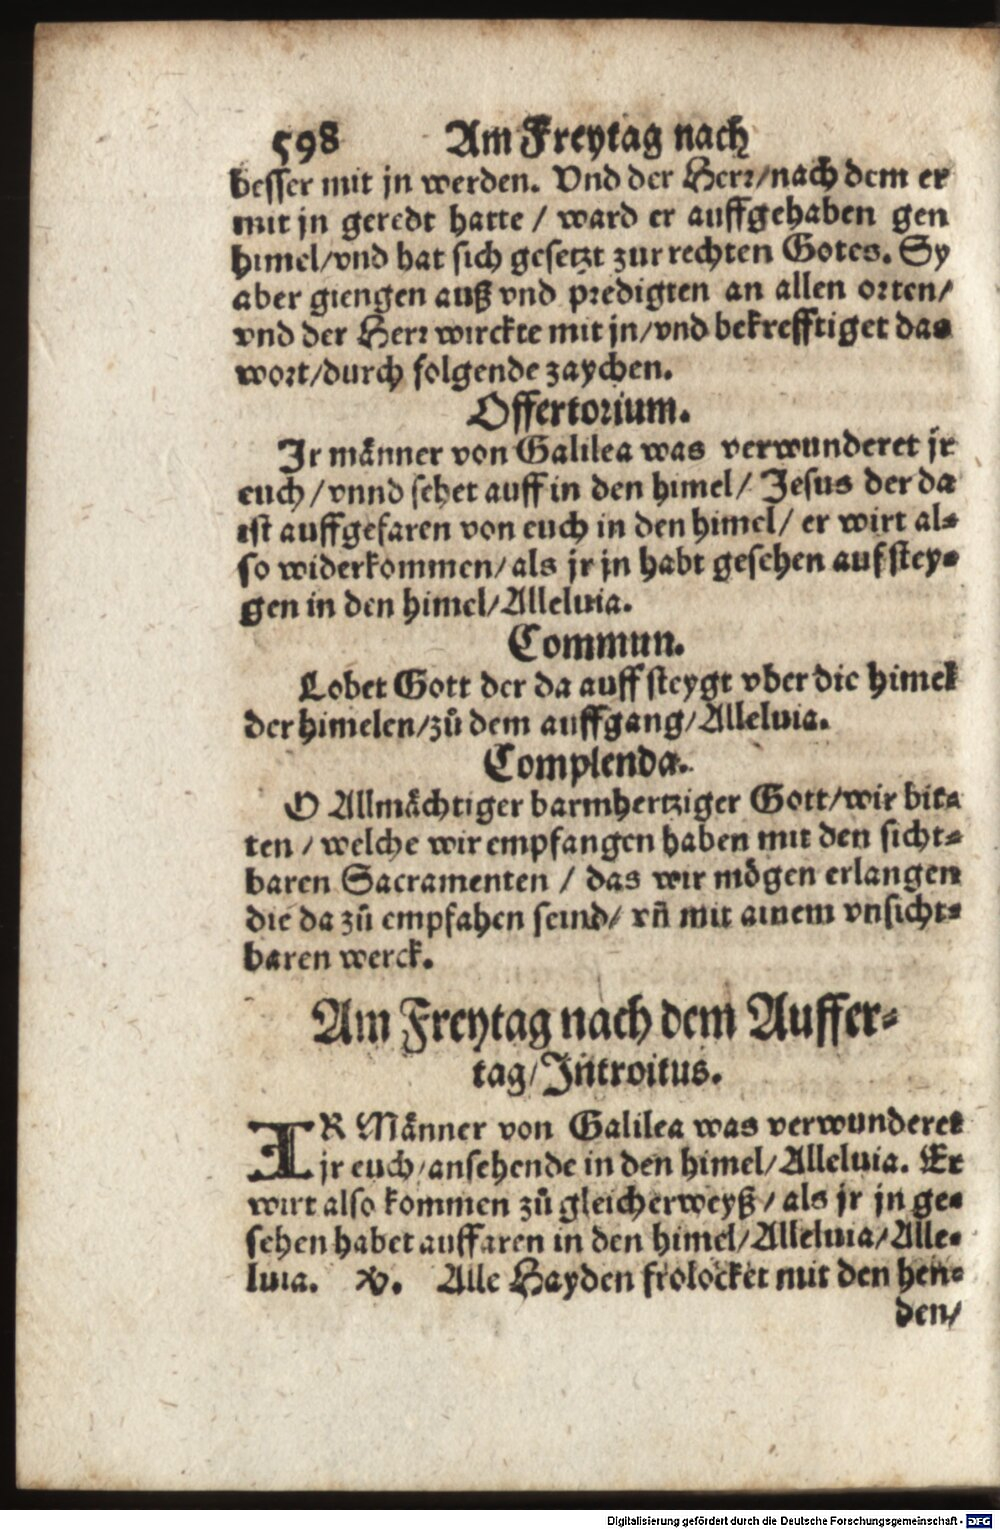 598 Am Freytag nach
besser mit jn werden. Vnd der Herr/nach dem er
mit jn geredt hatte / ward er auffgehaben gen
himel/vnd hat sich gesetzt zur rechten Gotes. Sy
aber giengen auß vnd predigten an allen orten/
vnd der Herr wirckte mit jn/vnd bekrefftiget das
wort/durch folgende zaychen.
Offertorium.
Ir männer von Galilea was verwunderet jr
euch/vnnd sehet auff in den himel/ Jesus der da
ist auffgefaren von euch in den himel/ er wirt al=
so widerkommen/als jr jn habt gesehen aufstey=
gen in den himel/Alleluia.
Commun.
Lobet Gott der da auff steygt vber die himel
der himelen/zů dem auffgang/Alleluia.
Complenda.
O Allmächtiger barmhertziger Gott/wir bit=
ten / welche wir empfangen haben mit den sicht=
baren Sacramenten / das wir mögen erlangen
die da zů empfahen seind/ vñ mit ainem vnsicht=
baren werck.
Am Freytag nach dem Auffer=
tag/Introitus.
IR Männer von Galilea was verwunderet
jr euch/ansehende in den himel/Alleluia. Er
wirt also kommen zů gleicherweyß/als jr jn ge=
sehen habet auffaren in den himel/Alleluia/Alle=
luia. ℣. Alle Hayden frolocket mit den hen=
den/
Digitalisierung gefördert durch die Deutsche Forschungsgemeinschaft - DFG